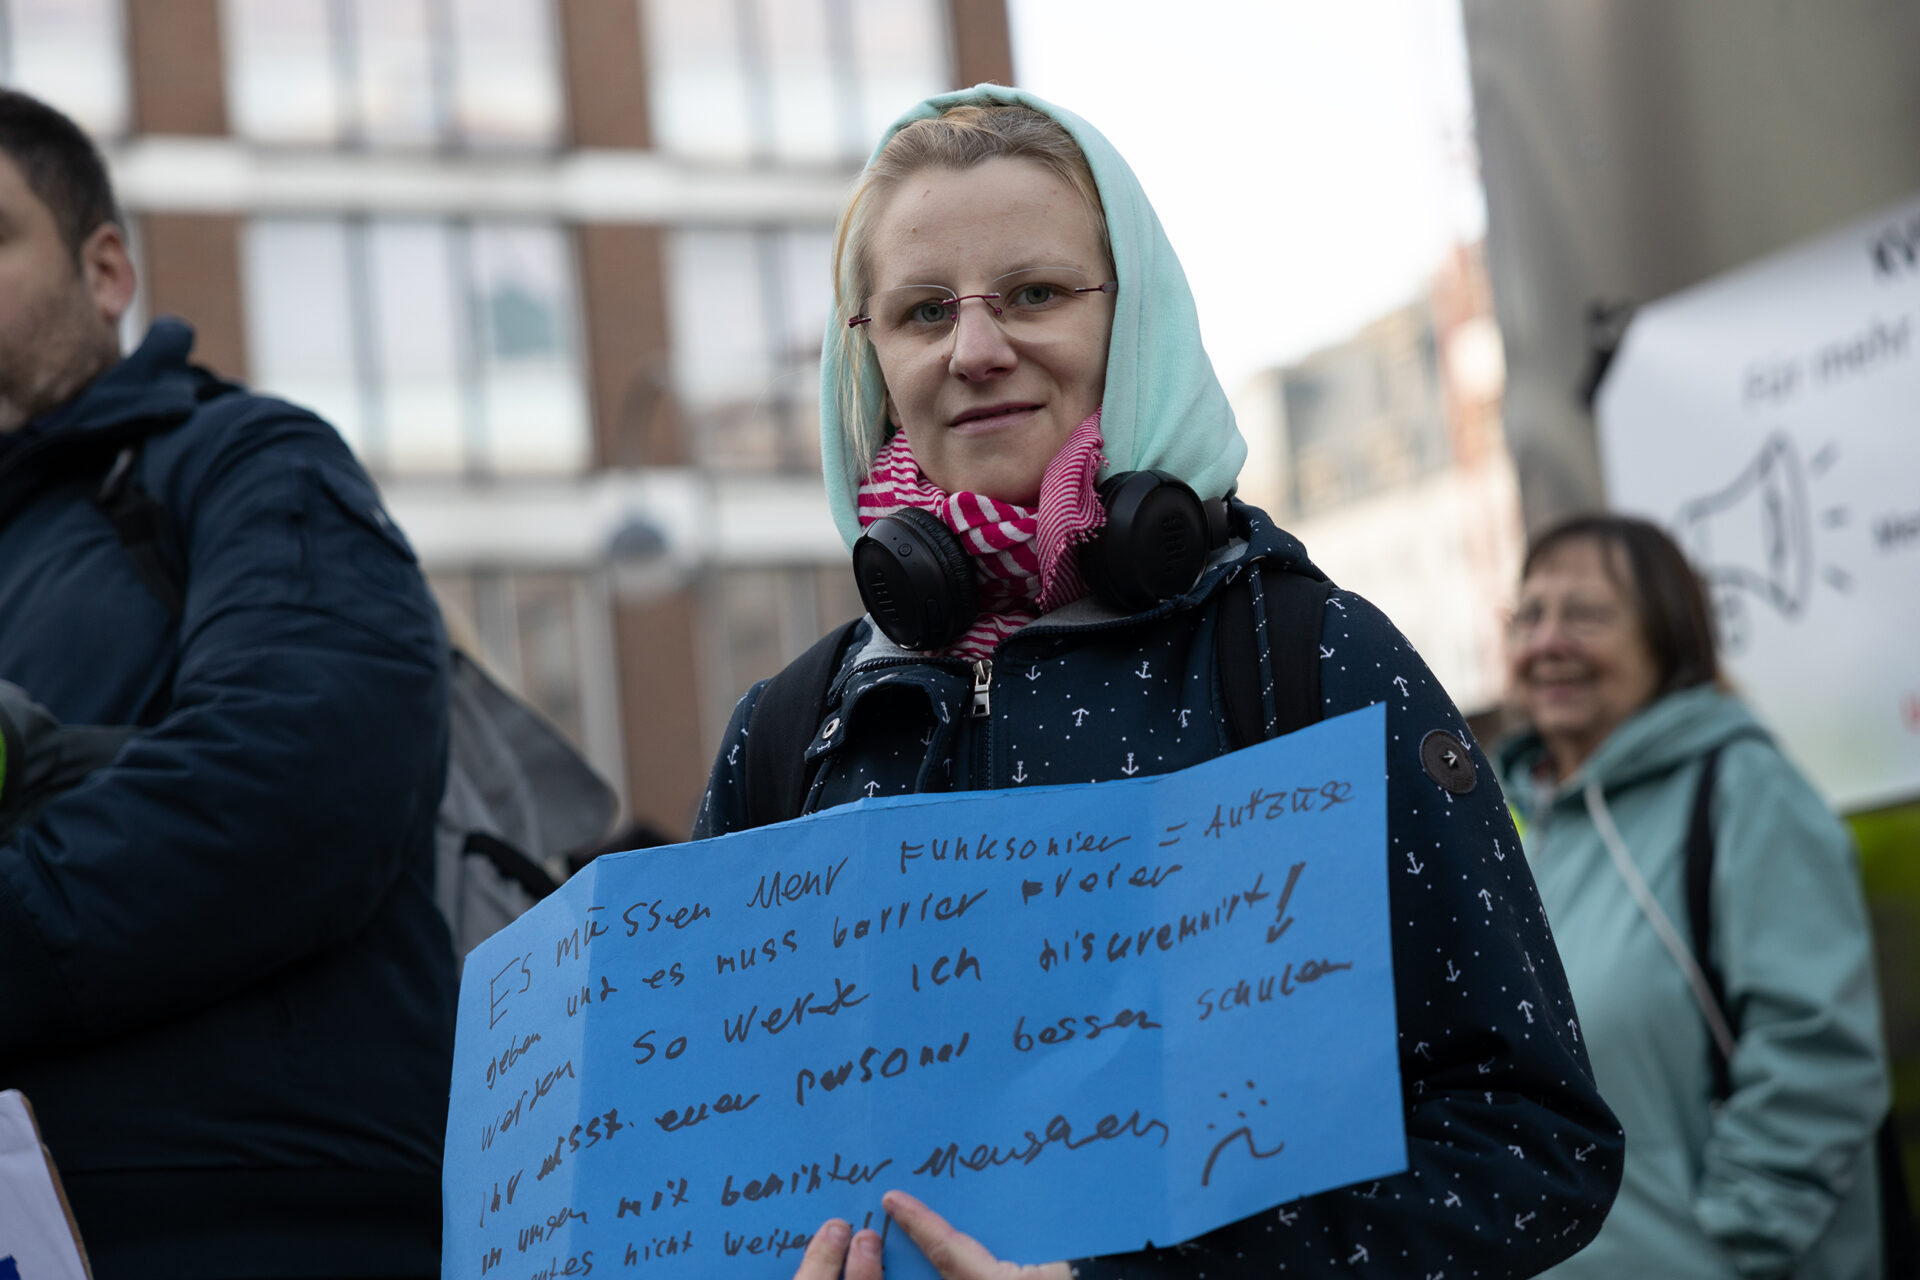 ES müssen Mehr Funksonier = Aufzüge
geben und es muss barrier Freier
werden So werde ich diskremnirt!
Ihr müsst euer personal besser schulen
in umgen mit behinter Menschen
nicht weiter!!
JBL
JBL
Für mehr